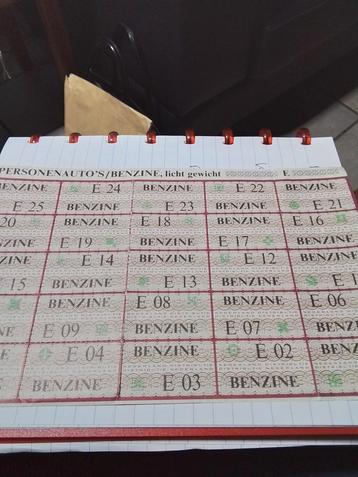 PERSONENAUTO'S/BENZINE, licht gewicht E
BENZINE E 24 BENZINE E 22 BENZINE
E 25 BENZINE E 23 BENZINE E 21
20 BENZINE E 18 BENZINE E 16
BENZINE E 19 BENZINE E 17 BENZINE
BENZINE E 14 BENZINE E 12 BENZINE
15 BENZINE E 13 BENZINE E 1
BENZINE E 08 BENZINE E 06
NE E 09 BENZINE E 07 BENZINE
BENZINE E 04 BENZINE E 02 BENZ
BENZINE E 03 BENZINE